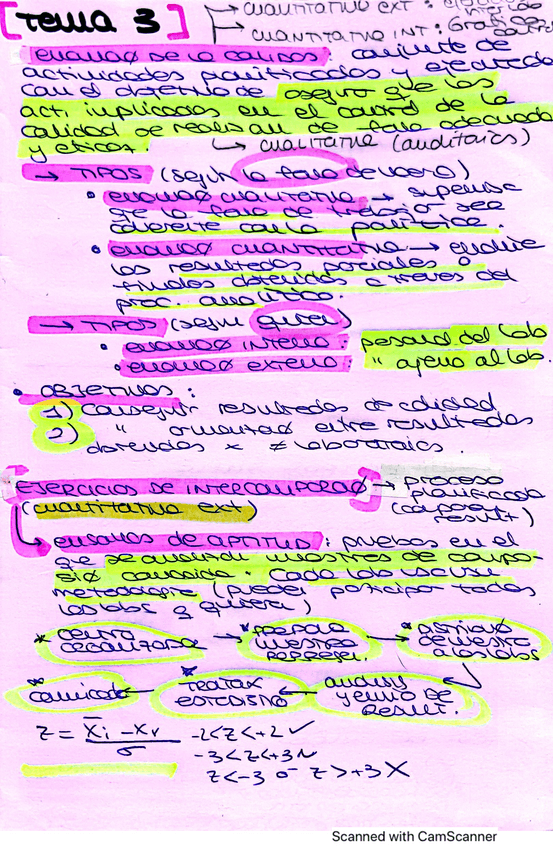 [TEMA 3]
→ cuantitativa EXT :
→ cuantitativa INT : Gráficos
evaluaø de la calidad : conjunto de
actividades planificadas y ejecutadas
con el objetivo de asegurar que las
act. implicadas en el control de la
calidad se realizan de forma adecuada
y eficaz.
↳ cualitativa (auditorías)
→ TIPOS (según la forma de hacerlo)
• evaluaø cualitativa → supervisa
que la forma de trabajar sea
coherente con la política.
• evaluaø cuantitativa → evalúa
los resultados parciales o
finales obtenidos a través del
proc. analítico.
→ TIPOS (según quien)
• evaluaø interna : personal del lab
• evaluaø externa : " ajeno al lab.
• OBJETIVOS :
1) Conseguir resultados de calidad
2) " armonizaø entre resultados
obtenidos x ≠ laboratorios.
[EJERCICIOS DE INTERCOMPARAø] → proceso
planificado
(cuantitativa ext)
(comparar
result)
↳ ensayos de aptitud : pruebas en el
que se analizan muestras de compo-
sició conocida. Cada lab usa su
metodología (pueden participar todos
los labs q quieran)
* CENTRO ORGANIZADOR → * PREPARA MUESTRA REPRESEN. → * DISTRIBUø DE MUESTRA A LOS LABS
ANÁLISIS Y ENVÍO DE RESULT. ← 
* TRATAX ESTADÍSTICO
*
Z = X̄i - Xv / σ
-2<Z<+2 ✓
-3<Z<+3 ~
Z<-3 o Z>+3 X
Scanned with CamScanner